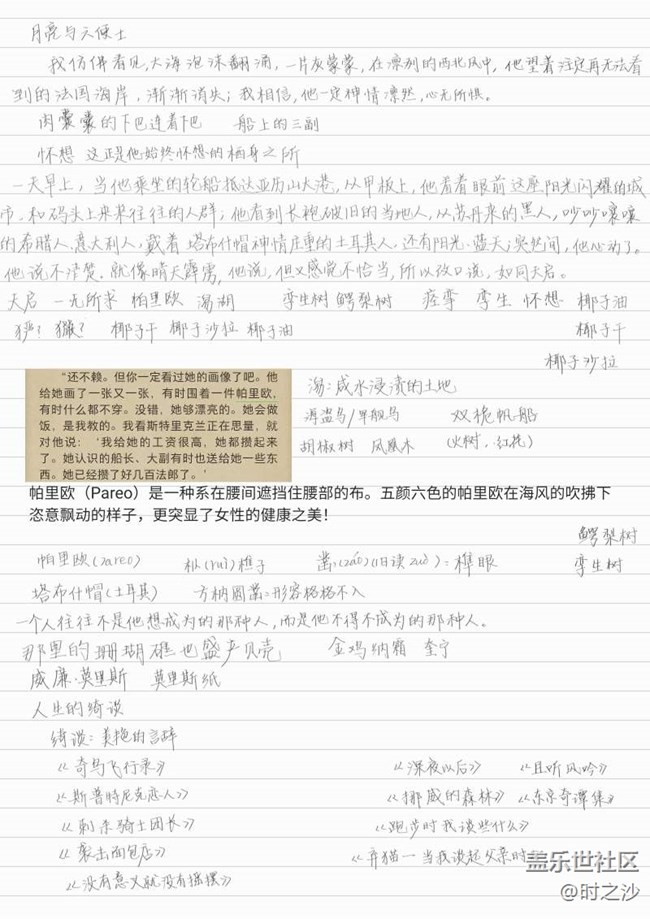 月亮与六便士
我仿佛看见,大海泡沫翻涌,一片灰蒙蒙,在凛冽的西北风中,他望着注定再无法看
到的法国海岸,渐渐消失;我相信,他一定神情凛然,心无所惧。
肉囊囊的下巴连着下巴 船上的三副
怀想 这正是他始终怀想的栖身之所
一天早上,当他乘坐的轮船抵达亚历山大港,从甲板上,他看着眼前这座阳光闪耀的城
市,和码头上来来往往的人群;他看到长袍破旧的当地人,从苏丹来的黑人,吵吵嚷嚷
的希腊人、意大利人、戴着塔布什帽神情庄重的土耳其人,还有阳光、蓝天;突然间,他心动了。
他说不清楚。就像晴天霹雳,他说,但又感觉不恰当,所以改口说,如同天启。
天启 一无所求 帕里欧 潟湖 孪生树 鳄梨树 痉挛 孪生 怀想 椰子油
椰子干 椰子沙拉 椰子油 椰子干
椰子沙拉
“还不赖。但你一定看过她的画像了吧。他
给她画了一张又一张,有时围着一件帕里欧,
有时什么都不穿。没错,她够漂亮的。她会做
饭,是我教的。我看斯特里克兰正在思量,就
对他说:‘我给她的工资很高,她都攒起来
了。她认识的船长、大副有时也送给她一些东
西。她已经攒了好几百法郎了。’
潟:咸水浸渍的土地
海盗鸟/军舰鸟 双桅帆船
胡椒树 凤凰木 (火树、红花)
帕里欧（Pareo）是一种系在腰间遮挡住腰部的布。五颜六色的帕里欧在海风的吹拂下
恣意飘动的样子，更突显了女性的健康之美！
鳄梨树
帕里欧(pareo) 枘(ruì)榫子 凿(záo)(旧读zuò)=榫眼 孪生树
塔布什帽(土耳其) 方枘圆凿=形容格格不入
一个人往往不是他想成为的那种人,而是他不得不成为的那种人。
那里的珊瑚礁也盛产贝壳 金鸡纳霜 奎宁
威廉·莫里斯 莫里斯纸
人生的绮谈
绮谈:美艳的言辞
《奇鸟飞行录》 《深夜以后》 《且听风吟》
《斯普特尼克恋人》 《挪威的森林》 《东京奇谭集》
《刺杀骑士团长》 《跑步时我谈些什么》
《袭击面包店》 《弃猫—当我谈起父亲时
《没有意义就没有摇摆》
盖乐世社区
@时之沙